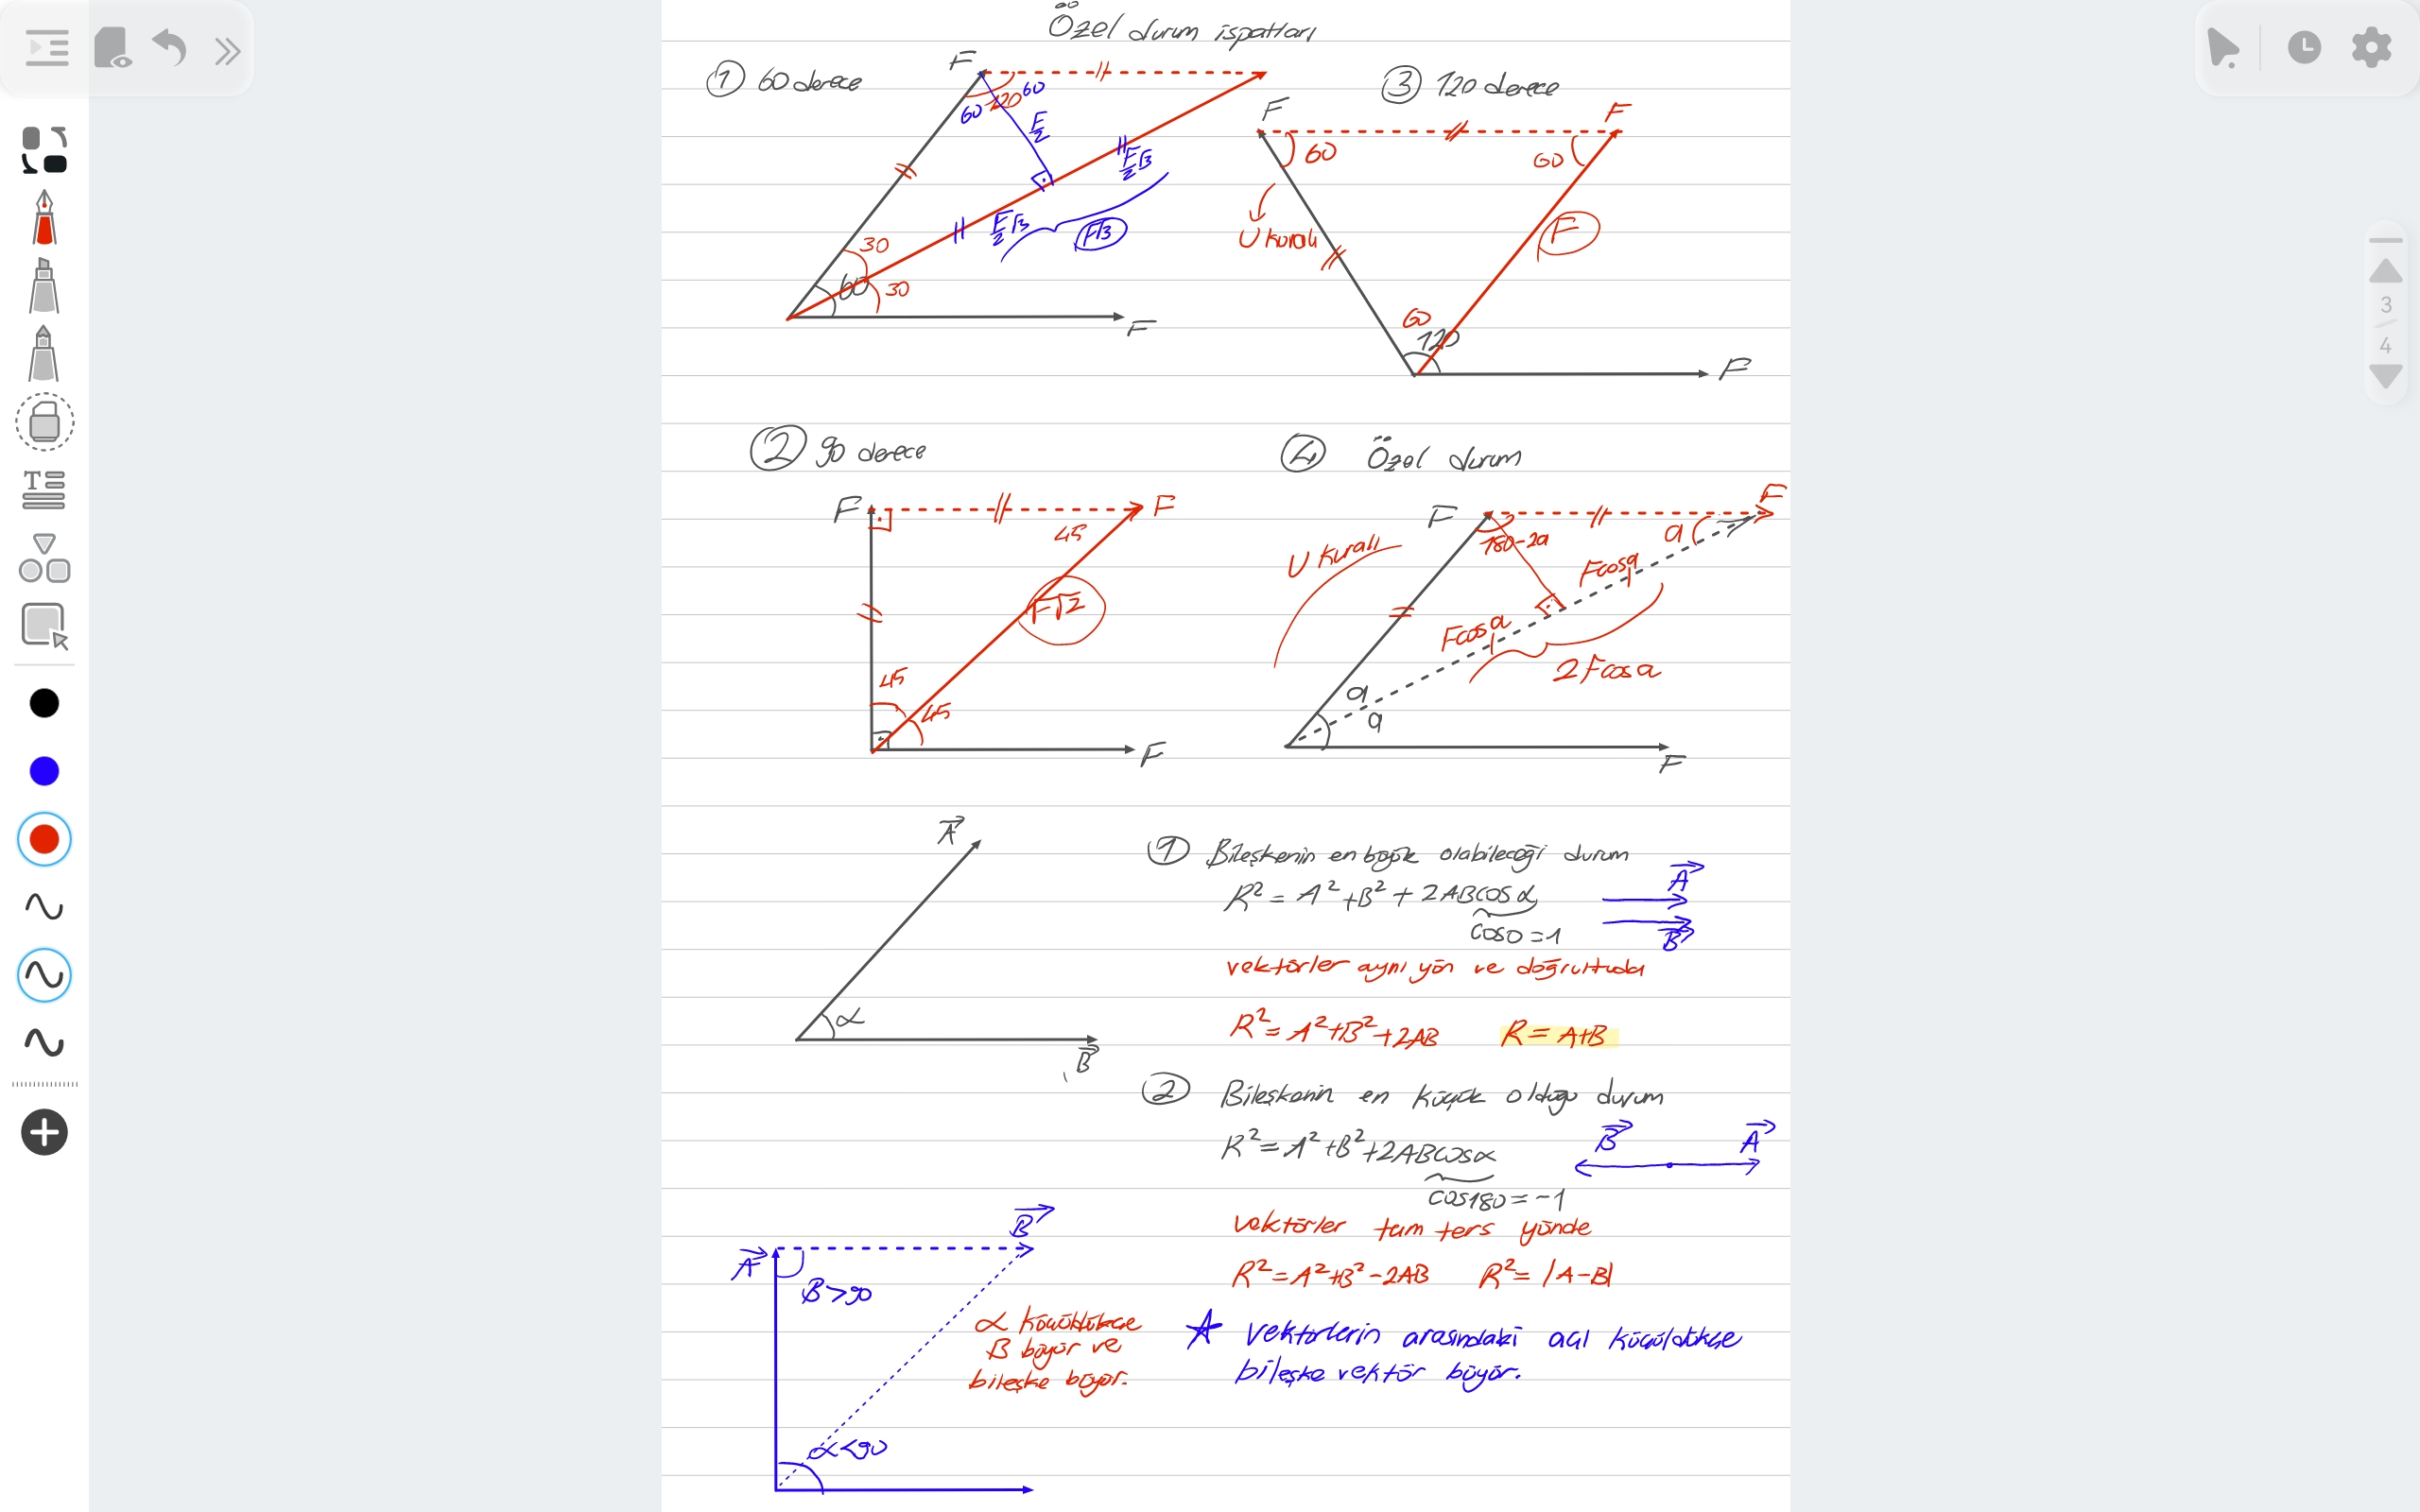 Özel durum ispatları
① 60 derece
F
120
60
60
F/2
F/2√3
F/2√3
F√3
30
60
30
F
③ 120 derece
F
F
60
60
U kuralı
F
60
120
F
② 90 derece
F
F
45
F√2
45
45
F
④ Özel durum
F
F
180-2a
a
U kuralı
Fcosa
Fcosa
2Fcosa
a
a
F
A
α
B
① Bileşkenin en büyük olabileceği durum
R² = A² + B² + 2ABcosα
A
cos0 = 1
B
vektörler aynı yön ve doğrultuda
R² = A²+B²+2AB R = A+B
② Bileşkenin en küçük olduğu durum
R² = A²+B²+2ABcosα
B A
cos180 = -1
vektörler tam ters yönde
R² = A²+B²-2AB R² = |A-B|
A
B
B>90
α küçüldükçe
B büyür ve
bileşke büyür.
★ Vektörlerin arasındaki açı küçüldükçe
bileşke vektör büyür.
α<90
3
4
T